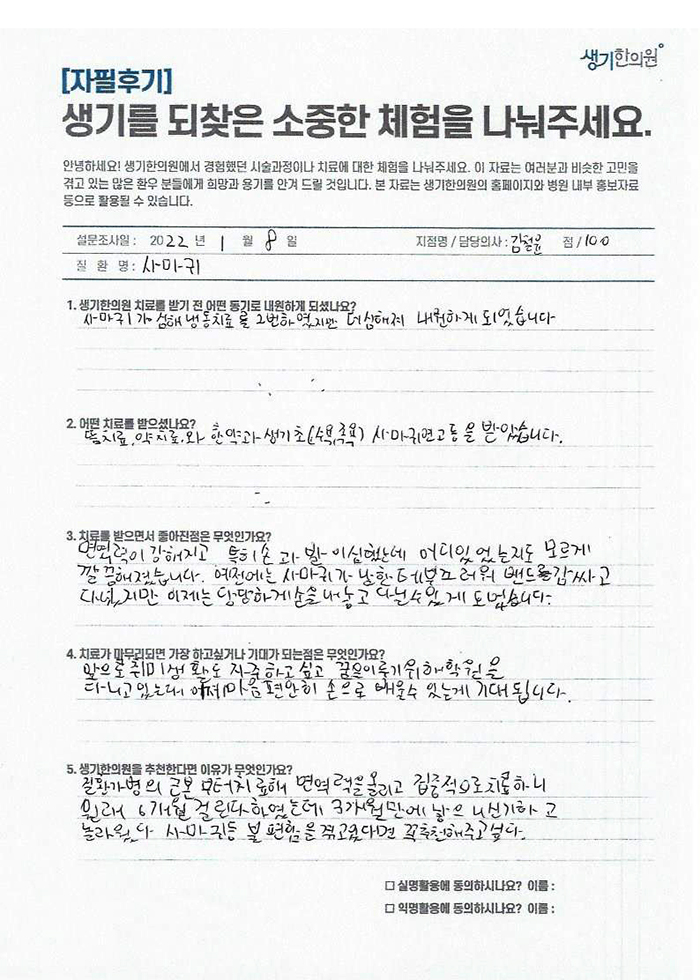 생기한의원
[자필후기]
생기를 되찾은 소중한 체험을 나눠주세요.
안녕하세요! 생기한의원에서 경험했던 시술과정이나 치료에 대한 체험을 나눠주세요. 이 자료는 여러분과 비슷한 고민을
겪고 있는 많은 환우 분들에게 희망과 용기를 안겨 드릴 것입니다. 본 자료는 생기한의원의 홈페이지와 병원 내부 홍보자료
등으로 활용될 수 있습니다.
설문조사일 : 2022 년 1 월 8 일 지점명 / 담당의사 : 점 / 100
질 환 명 : 사마귀
1. 생기한의원 치료를 받기 전 어떤 동기로 내원하게 되셨나요?
사마귀가 심해 냉동치료를 2번하였지만 더심해져 내원하게 되었습니다
2. 어떤 치료를 받으셨나요?
뜸치료, 약치료,와 한약과 생기초 사마귀연고등을 받았습니다.
3. 치료를 받으면서 좋아진점은 무엇인가요?
면역력이 강해지고 특히 손과 발이심했는데 어디있었는지도 모르게
깔끔해졌습니다. 예전에는 사마귀가 난한데 부끄러워 밴드를감싸고
다녔지만 이제는 당당하게손을내놓고 다닐수있게 되었습니다.
4. 치료가 마무리되면 가장 하고싶거나 기대가 되는점은 무엇인가요?
앞으로취미생활도 자주하고싶고 꿈을이루기위해학원을
다니고있는데 마음편안히 손으로 배울수 있는게 기대됩니다.
5. 생기한의원을 추천한다면 이유가 무엇인가요?
질환가병의 근본 부터치료해 면역력을올리고 집중적으로치료하니
원래 6개월 걸린다하였는데 3개월만에 낳으니신기하고
놀라웠다 사마귀등 불편함을겪고있다면 꼭추천해주고싶다.
□ 실명활용에 동의하시나요? 이름 :
□ 익명활용에 동의하시나요? 이름 :